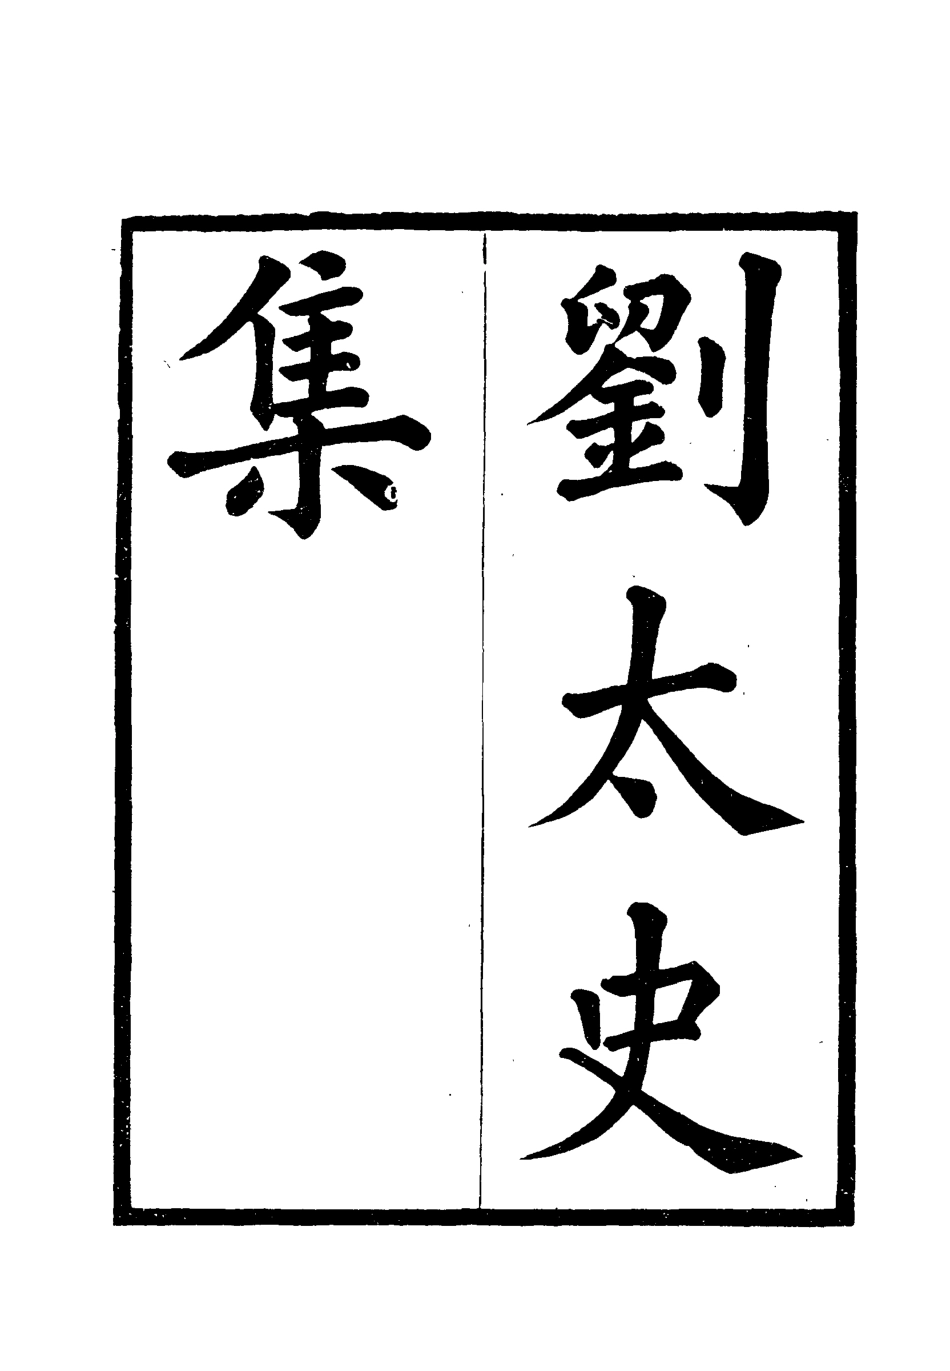 劉太史
集